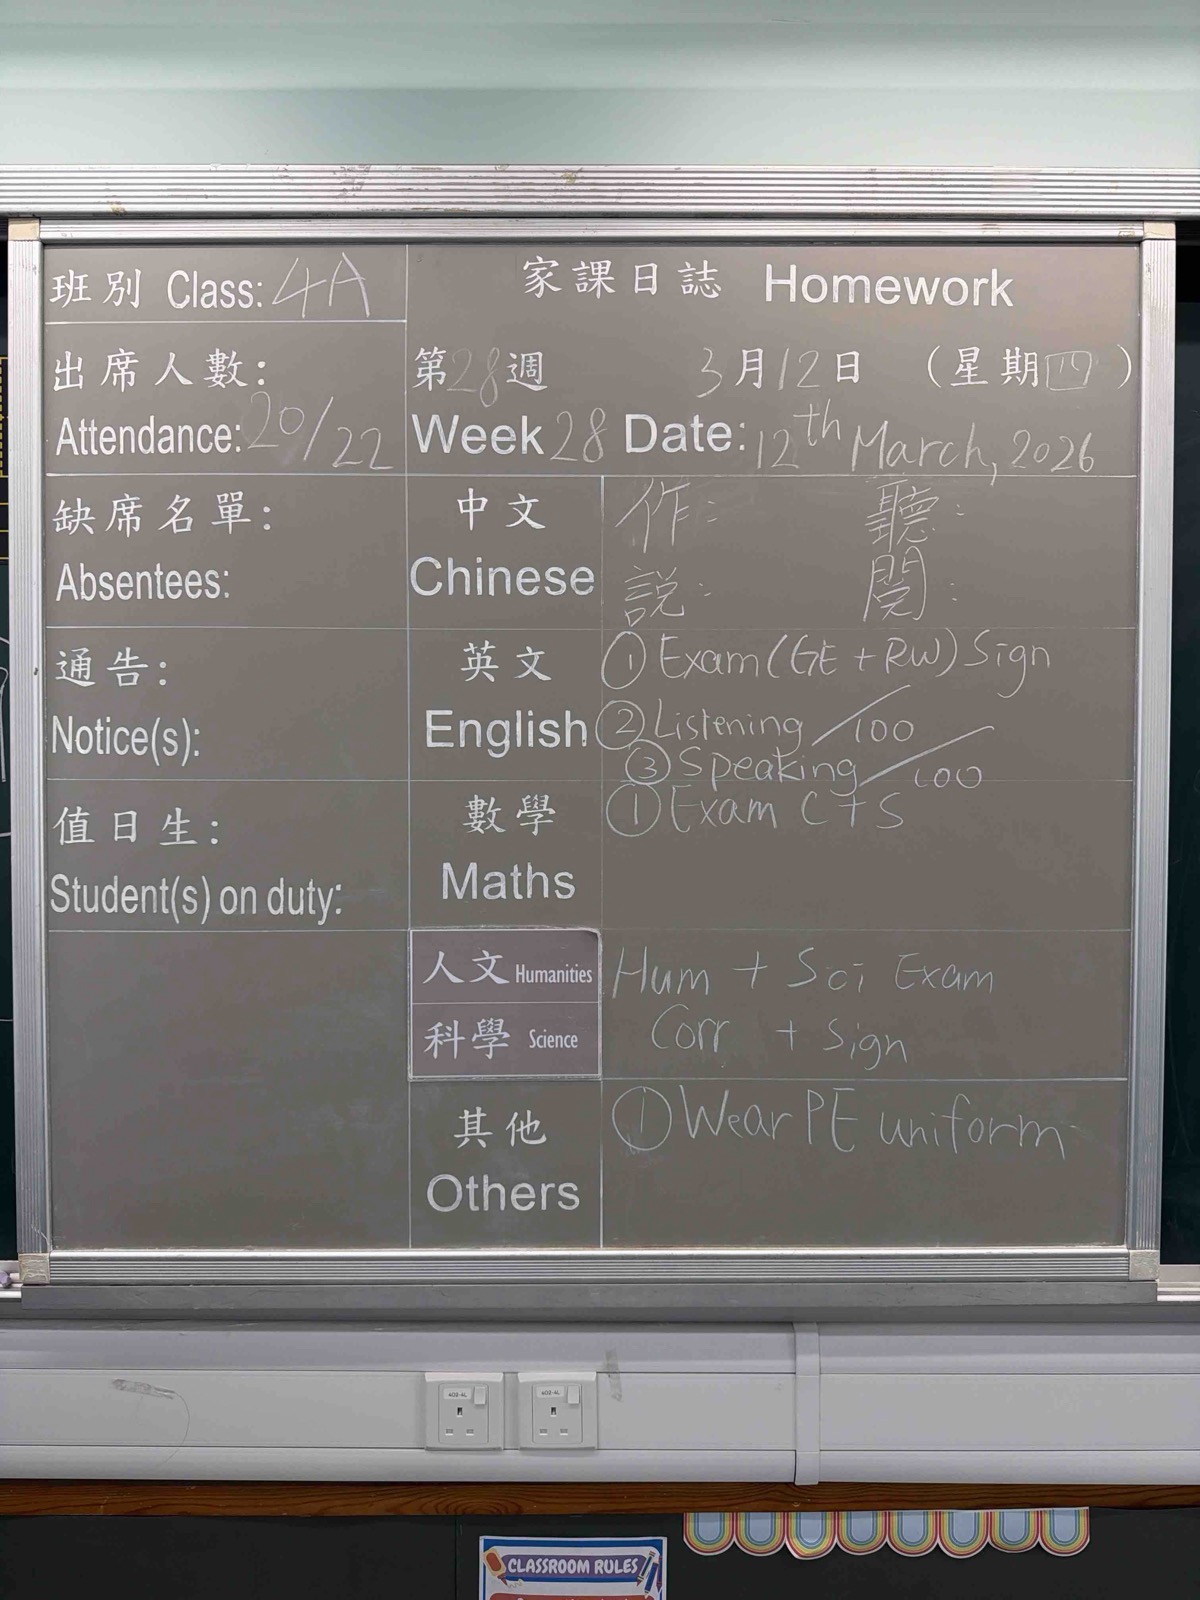 班別 Class: 4A
家課日誌 Homework
出席人數:
Attendance: 20/22
第28週 3月12日 (星期四)
Week 28 Date: 12th March, 2026
缺席名單:
Absentees:
中文
Chinese
作: 聽:
說: 閱:
通告:
Notice(s):
英文
English
① Exam (GE + RW) Sign
② Listening /100
③ Speaking /100
值日生:
Student(s) on duty:
數學
Maths
① Exam C + S
人文 Humanities
科學 Science
Hum + Sci Exam
Corr + Sign
其他
Others
① Wear PE uniform
402-4L
402-4L
CLASSROOM RULES